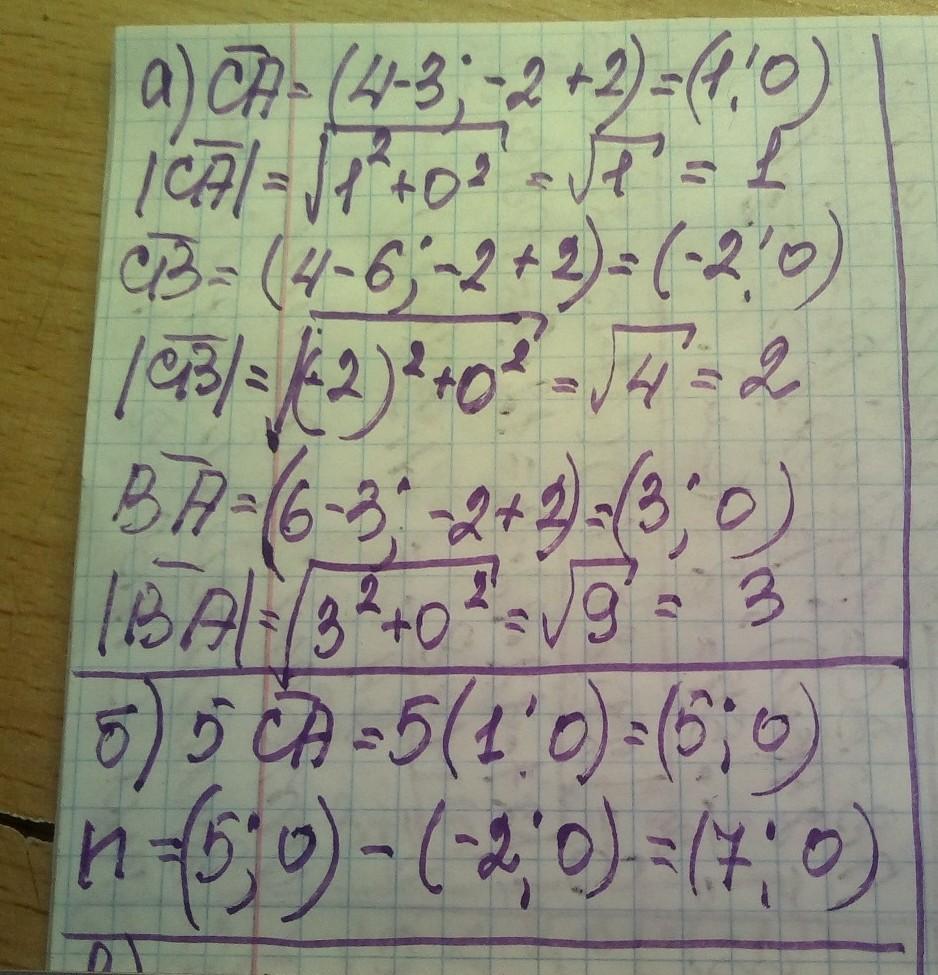 а) C̅A̅ = (4-3; -2+2) = (1; 0)
|C̅A̅| = √1²+0² = √1 = 1
C̅B̅ = (4-6; -2+2) = (-2; 0)
|C̅B̅| = √(-2)²+0² = √4 = 2
B̅A̅ = (6-3; -2+2) = (3; 0)
|B̅A̅| = √3²+0² = √9 = 3
б) 5 C̅A̅ = 5(1; 0) = (5; 0)
n = (5; 0) - (-2; 0) = (7; 0)